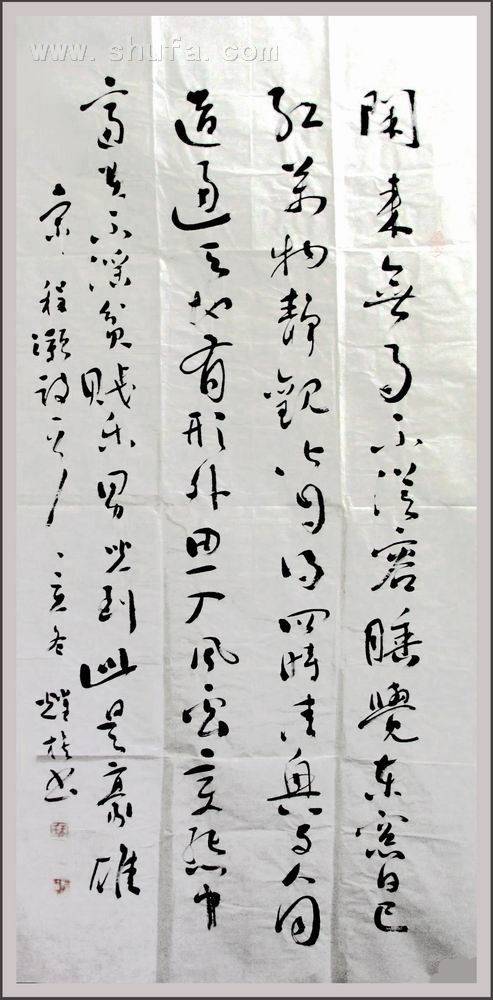 www.shufa.com
閑来無事不從容睡覺东窓日已
红萬物靜觀皆自得四時佳興与人同
道通天地有形外思入风雲变態中
富貴不淫貧賤乐男児到此是豪雄
宋程灝詩一首丁亥冬趙书